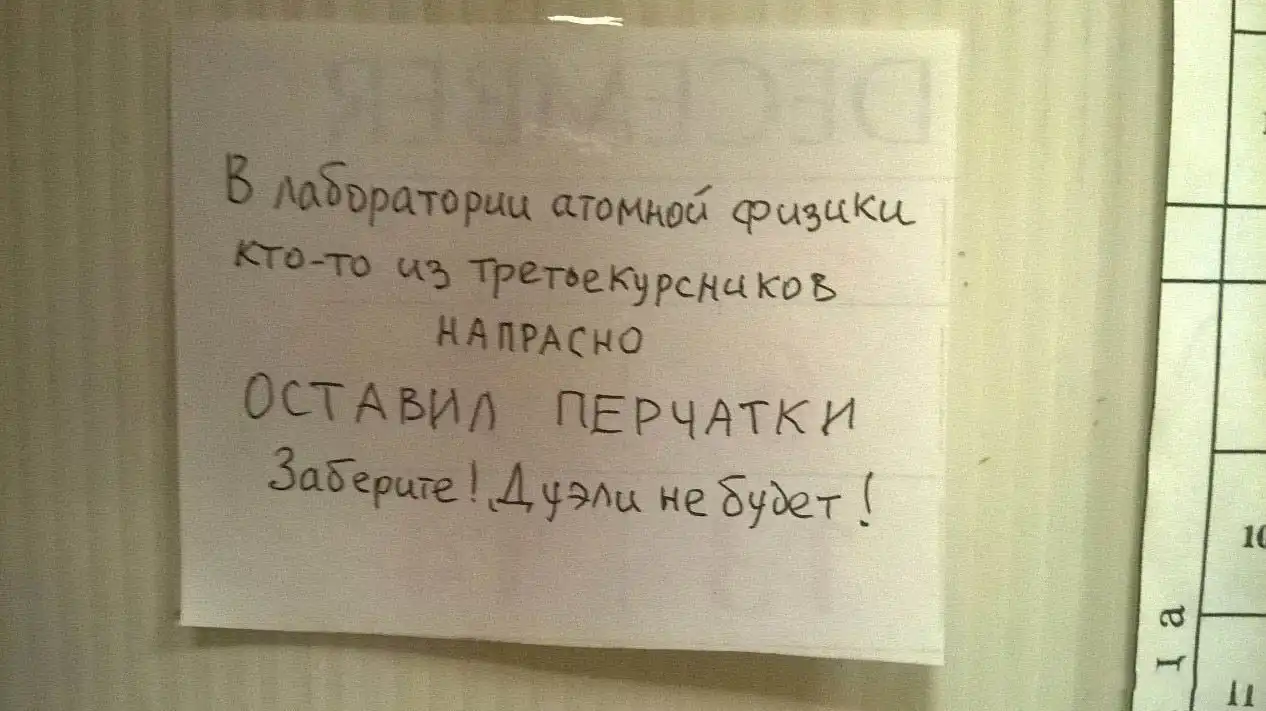 DECEMBER
В лаборатории атомной физики
кто-то из третьекурсников
НАПРАСНО
ОСТАВИЛ ПЕРЧАТКИ
Заберите! Дуэли не будет!
10
11
1 a